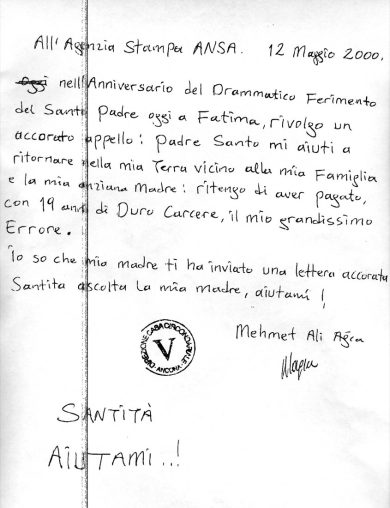 All'Agenzia Stampa ANSA. 12 Maggio 2000.
Oggi nell'Anniversario del Drammatico Ferimento
del Santo Padre oggi a Fatima, rivolgo un
accorato appello: Padre Santo mi aiuti a
ritornare nella mia Terra vicino alla mia Famiglia
e la mia anziana Madre: ritengo di aver pagato,
con 19 anni di Duro Carcere, il mio grandissimo
Errore.
Io so che mia madre ti ha inviato una lettera accorata
Santita ascolta La mia Madre, aiutami!
Mehmet Ali Ağca
DIREZIONE CASA CIRCONDARIALE
V
ANCONA
SANTITÀ
AIUTAMI..!